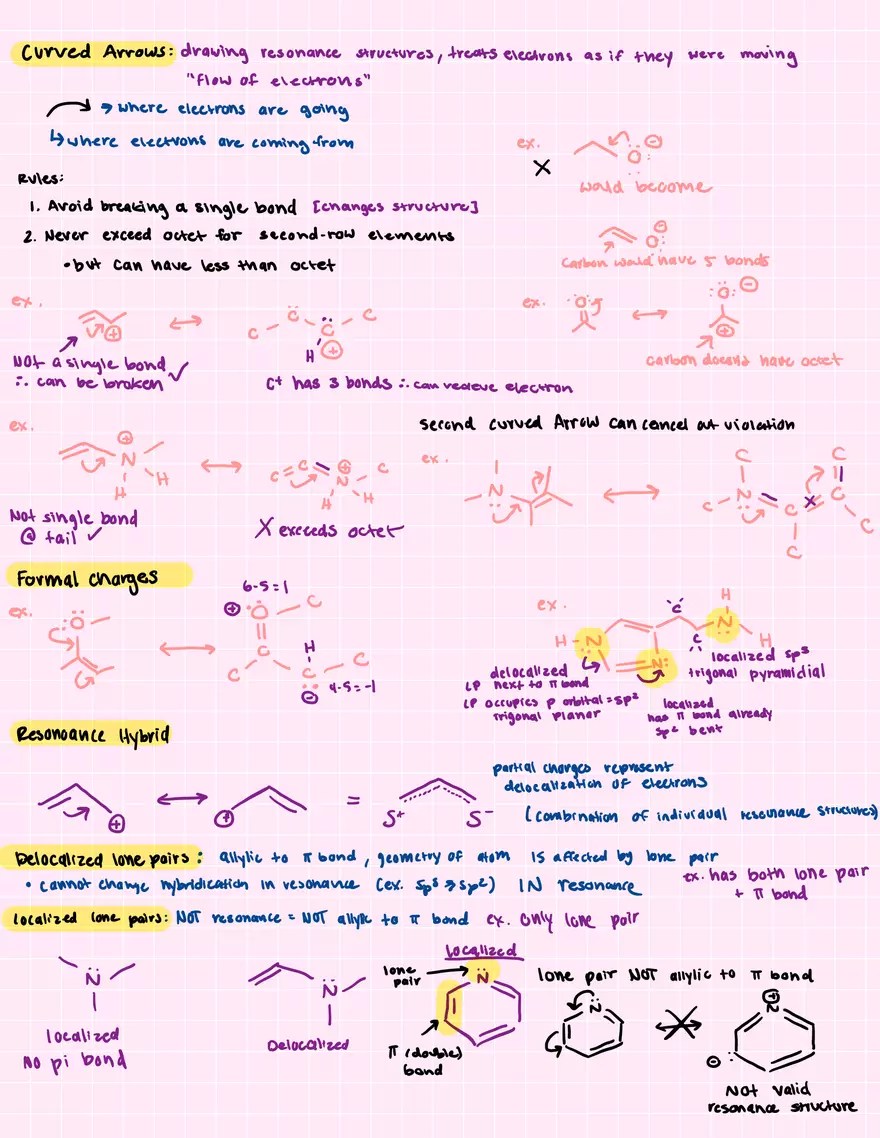 Curved Arrows: drawing resonance structures, treats electrons as if they were moving
"flow of electrons"
→ where electrons are going
↳ where electrons are coming from
Rules:
1. Avoid breaking a single bond [changes structure]
2. Never exceed octet for second-row elements
• but can have less than octet
ex.
X
O
⊖
would become
O
⊖
carbon would have 5 bonds
ex.
⊕
NOT a single bond
∴ can be broken ✓
↔
C C C C
H ⊕
C+ has 3 bonds ∴ can recieve electron
ex.
O
↔
O ⊖
⊕
carbon doesn't have octet
ex.
⊕
N
H H
Not single bond
@ tail ✓
↔
C = C ⊕ C
N
H H
X exceeds octet
second curved Arrow can cancel out violation
ex.
N
↔
C C
C - N C C
C C
Formal charges
ex.
O
↔
6-5=1
⊕ O - C
C H
C C C
⊖ 4-5=-1
ex.
H
C N
H - N C H
N
delocalized
LP next to π bond
LP occupies p orbital = sp²
trigonal planar
localized
has π bond already
sp² bent
localized sp³
trigonal pyramidial
Resonoance Hybrid
⊕ ↔ ⊕ = S+ S-
partial charges represent
delocalization of electrons
(combination of individual resonance structures)
Delocalized lone pairs: allylic to π bond, geometry of atom is affected by lone pair
• cannot change hybridication in resonance (ex. sp³ → sp²) IN resonance
ex. has both lone pair
+ π bond
localized lone pairs: NOT resonance = NOT allylic to π bond ex. only lone pair
N
localized
No pi bond
N
Delocalized
localized
lone
pair
N
π (double)
bond
lone pair NOT allylic to π bond
N
⊕
N
⊖
NOT valid
resonance structure